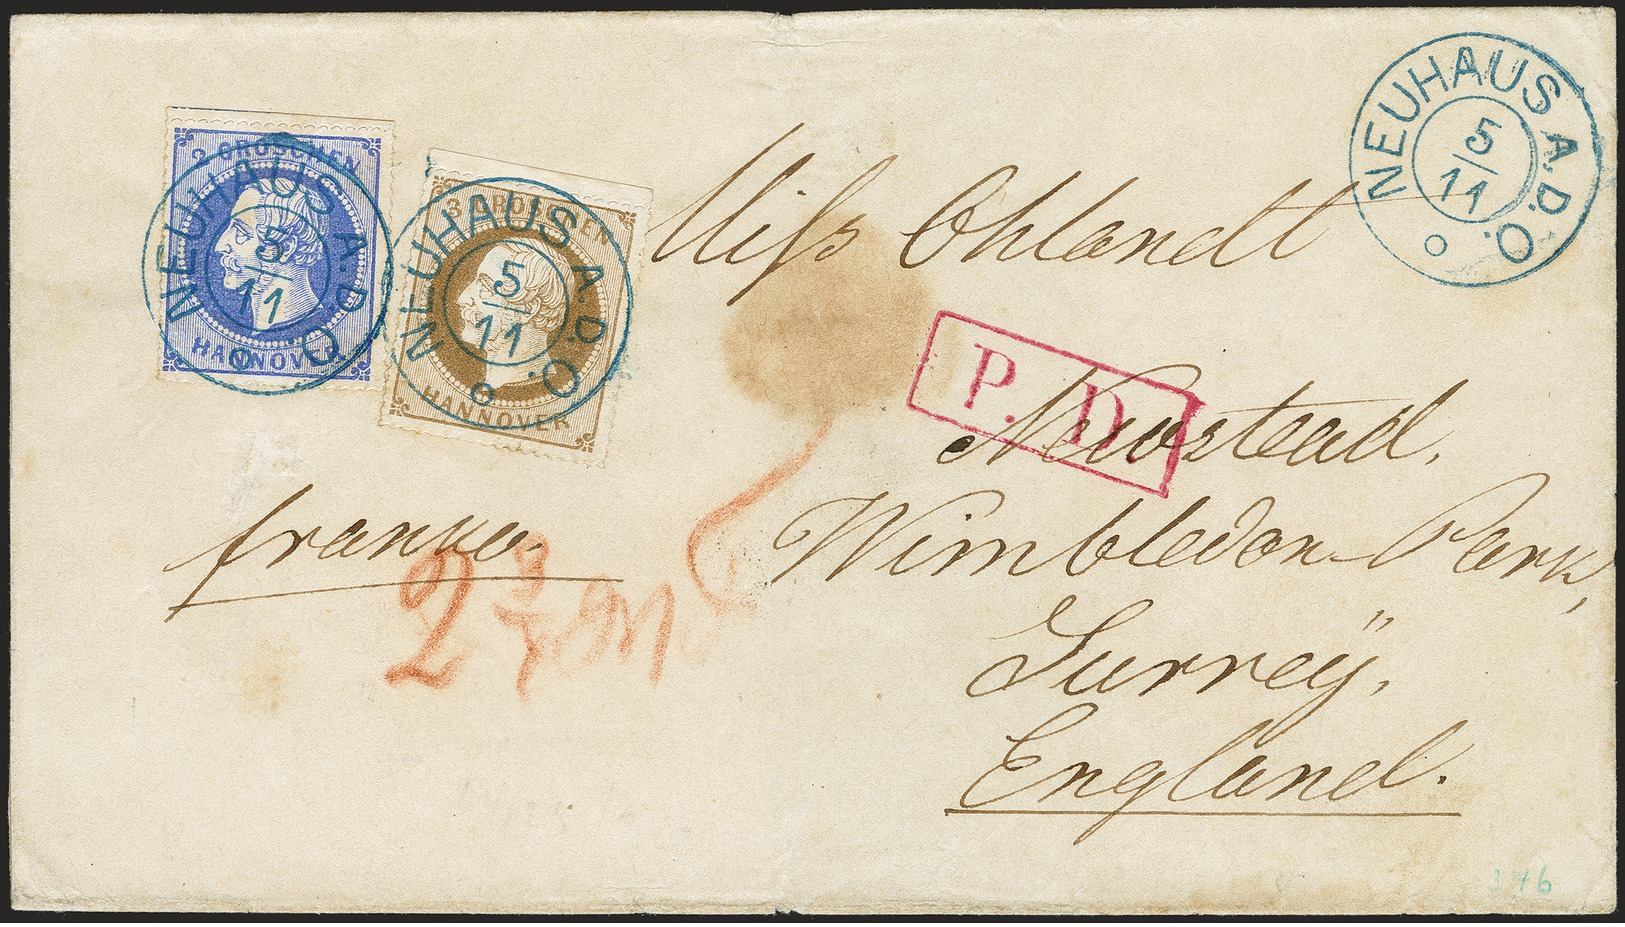 NEUHAUS A.D.O.
5/11
2 GROSCHEN
HANNOVER
NEUHAUS A.D.O.
5/11
3 GROSCHEN
HANNOVER
NEUHAUS A.D.O.
5/11
Miſs Ohlandt
P. D.
Newstead,
franko.
Wimbledon Park,
2
Surrey,
England.
346